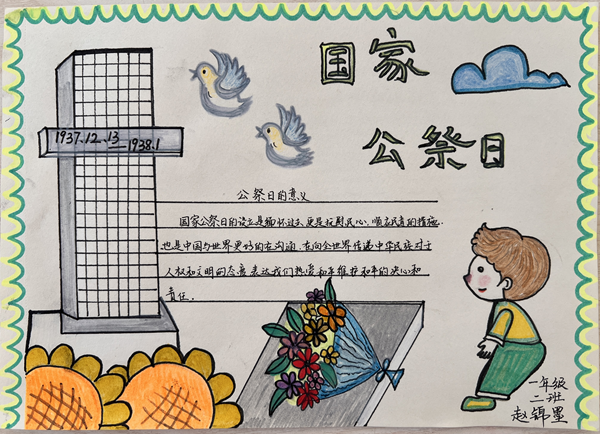 国家
公祭日
1937.12.13—1938.1
公祭日的意义
国家公祭日的设立是缅怀过去,更是抚慰民心、顺应民意的措施..
也是中国与世界更好的在沟通,在向全世界传递中华民族对于
人权和文明的态度表达我们热爱和平维护和平的决心和
责任.
一年级
二班
赵锦墨